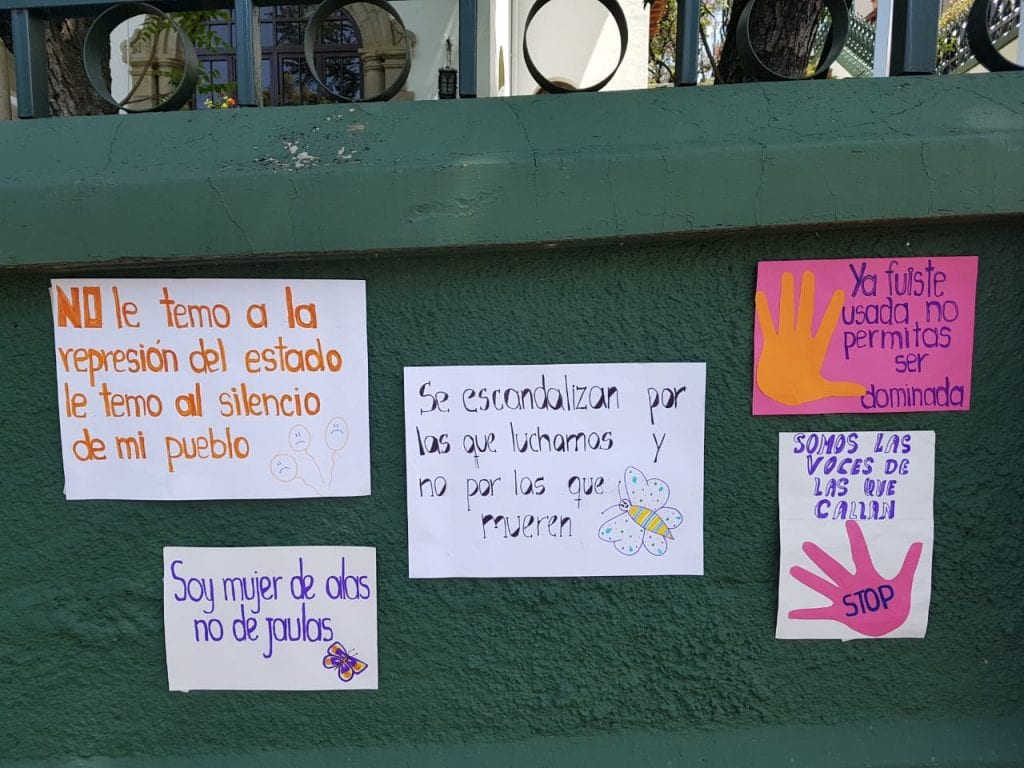 NO le temo a la
represión del estado
le temo al silencio
de mi pueblo
Se escandalizan por
las que luchamos y
no por las que
mueren
Ya fuiste
usada no
permitas
ser
dominada
SOMOS LAS
VOCES DE
LAS QUE
CALLAN
STOP
Soy mujer de alas
no de jaulas